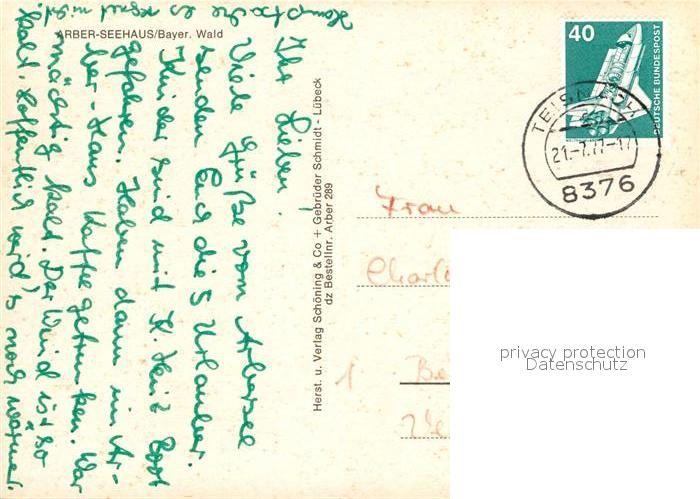 ARBER-SEEHAUS/Bayer. Wald
Ihr Lieben!
Viele Grüße vom Arbersee
senden Euch die 5 Urlauber.
Kinder sind mit K. Heinz Boot
gefahren. Haben dann im Ar-
ber-Haus Kaffee getrunken. War
mächtig kalt. Der Wind ist so
kalt. Hoffentlich wird's noch wärmer.
Hauptsache es regnet nicht.
Herst. u. Verlag Schöning & Co + Gebrüder Schmidt - Lübeck
dz Bestellnr. Arber 289
40
DEUTSCHE BUNDESPOST
21.-7.77-17
8376
Frau
1
privacy protection
Datenschutz